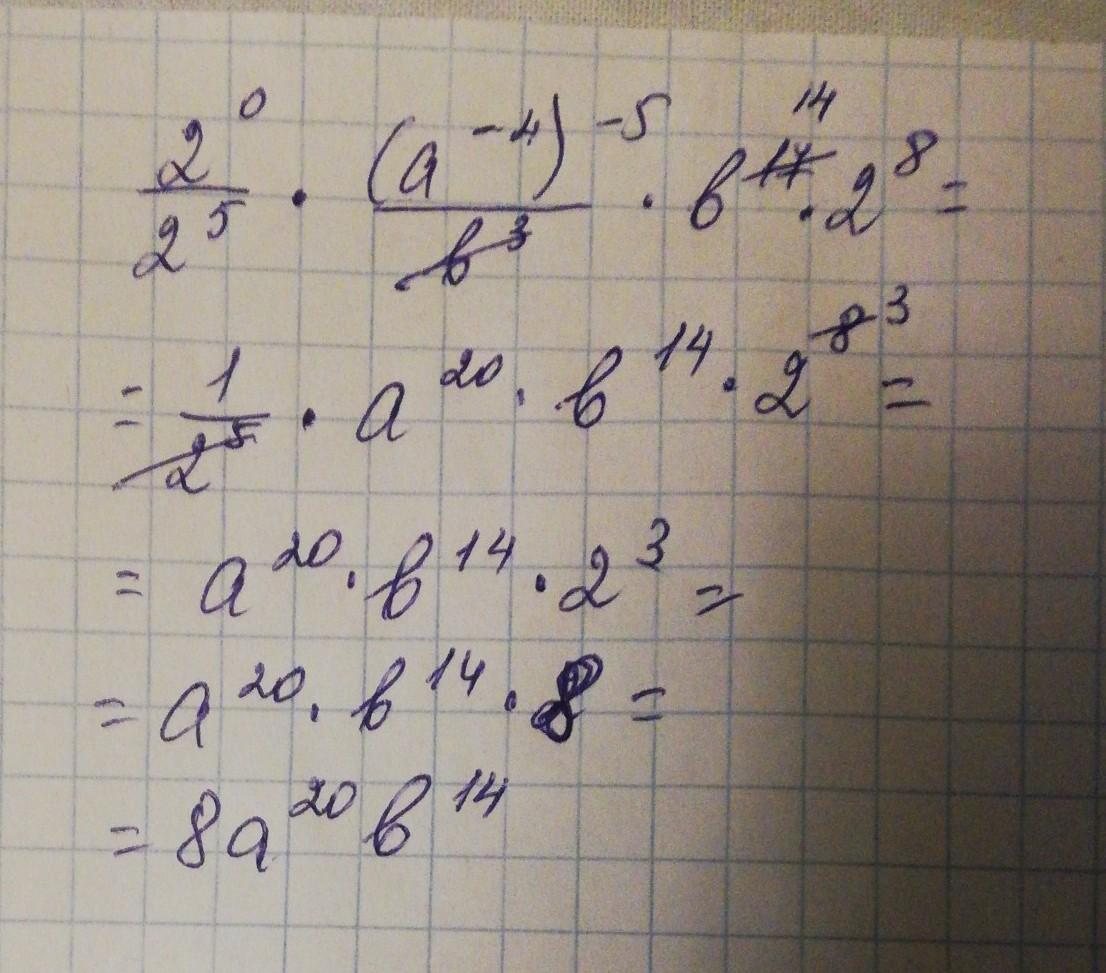 2⁰/2⁵ · (a⁻⁴)⁻⁵/b³ · b¹⁷ ¹⁴ · 2⁸ =
= 1/2⁵ · a²⁰ · b¹⁴ · 2⁸ ³ =
= a²⁰ · b¹⁴ · 2³ =
= a²⁰ · b¹⁴ · 8 =
= 8a²⁰b¹⁴